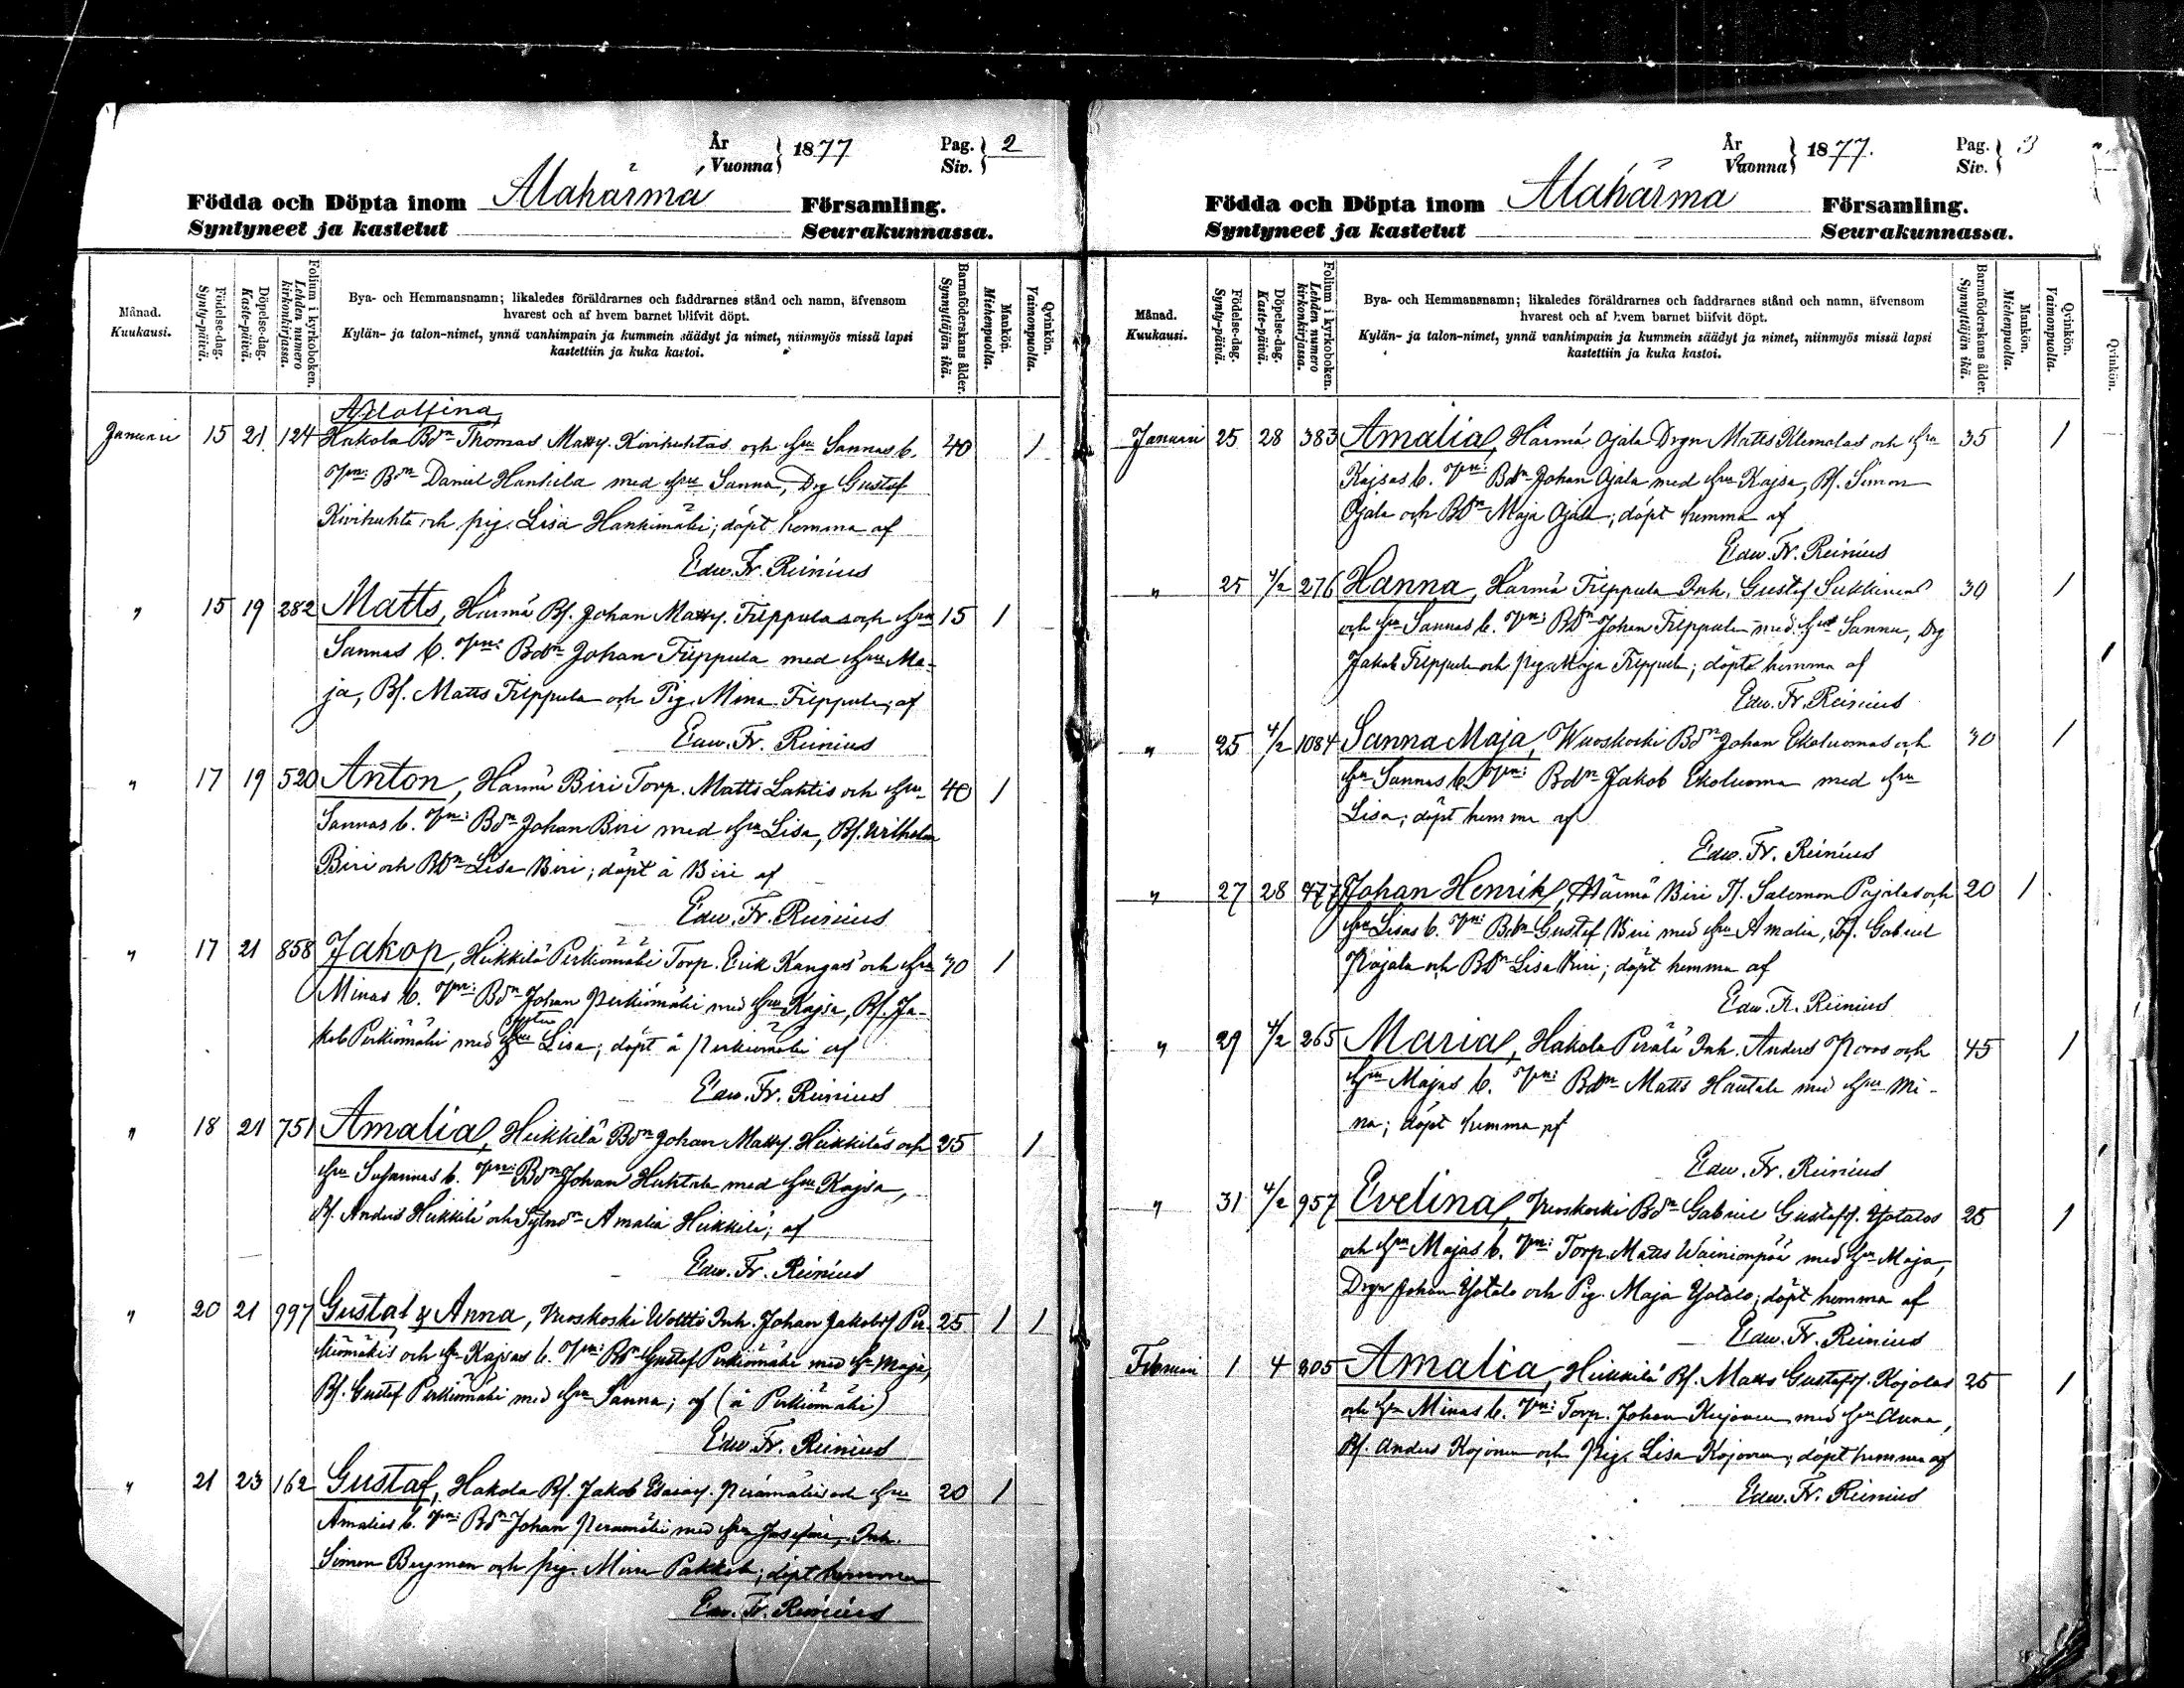 År
Vuonna } 1877
Pag.
Siv. } 2
Födda och Döpta inom Alahärmä Församling.
Syntyneet ja kastetut Seurakunnassa.
Månad.
Kuukausi.
Födelse-dag.
Synty-päivä.
Döpelse-dag.
Kaste-päivä.
Folium i kyrkoboken.
Lehden numero
kirkonkirjassa.
Bya- och Hemmansnamn; likaledes föräldrarnes och faddrarnes stånd och namn, äfvensom
hvarest och af hvem barnet blifvit döpt.
Kylän- ja talon-nimet, ynnä vanhimpain ja kummein säädyt ja nimet, niinmyös missä lapsi
kastettiin ja kuka kastoi.
Barnaföderskans ålder.
Synnyttäjän ikä.
Mankön.
Miehenpuolta.
Qvinkön.
Vaimonpuolta.
Adolfina,
Januari 15 21 124 Hakola Bdn Thomas Matts. Kivihuhtas och Hru Sannas b. 40 1
Vn: Bdn Daniel Hanhila med Hru Sanna, Drg Gustaf
Kivihuhta och pig. Lisa Hankimäki; döpt hemma af
Edw. Fr. Reinius
" 15 19 282 Matts, Härmä Bf. Johan Matts. Filppulas och Hru 15 1
Sannas b. Vn: Bdn Johan Filppula med Hru Ma-
ja, Bf. Matts Filppula och Pig. Mina Filppula; af
Edw. Fr. Reinius
" 17 19 520 Anton, Härmä Biri Torp. Matts Lahtis och Hru 40 1
Sannas b. Vn: Bdn Johan Biri med Hru Lisa, Bf. Wilhelm
Biri och Bdn Lisa Biri; döpt å Biri af
Edw. Fr. Reinius
" 17 21 858 Jakop, Heikkilä Perkiömäki Torp. Erik Kangas och Hru 40 1
Minas b. Vn: Bdn Johan Perkiömäki med Hru Kajsa, Bf. Ja-
kob Perkiömäki med Lisa; döpt å Perkiömäki af
Edw. Fr. Reinius
" 18 21 751 Amalia, Heikkilä Bdn Johan Matts. Heikkiläs och 25 1
Hru Susannas b. Vn: Bdn Johan Huhtala med Hru Kajsa,
Bf. Anders Heikkilä och Amalia Heikkilä; af
Edw. Fr. Reinius
" 20 21 997 Gustaf & Anna, Vuoskoski Woltti Inh. Johan Jakobs. Per- 25 1 1
kiömäkis och Hru Kajsas b. Vn: Bdn Gustaf Perkiömäki med Hru Maja,
Bf. Gustaf Perkiömäki med Hru Sanna; af (å Perkiömäki)
Edw. Fr. Reinius
" 21 23 162 Gustaf, Hakola Bf. Jakob Esaias. Perämäkis och Hru 20 1
Amalias b. Vn: Bdn Johan Perämäki med Hru Josefina, Inh.
Simon Bergman och pig. Mina Pakkala; döpt hemma
Edw. Fr. Reinius
År
Vuonna } 1877.
Pag.
Siv. } 3
Födda och Döpta inom Alahärmä Församling.
Syntyneet ja kastetut Seurakunnassa.
Månad.
Kuukausi.
Födelse-dag.
Synty-päivä.
Döpelse-dag.
Kaste-päivä.
Folium i kyrkoboken.
Lehden numero
kirkonkirjassa.
Bya- och Hemmansnamn; likaledes föräldrarnes och faddrarnes stånd och namn, äfvensom
hvarest och af hvem barnet blifvit döpt.
Kylän- ja talon-nimet, ynnä vanhimpain ja kummein säädyt ja nimet, niinmyös missä lapsi
kastettiin ja kuka kastoi.
Barnaföderskans ålder.
Synnyttäjän ikä.
Mankön.
Miehenpuolta.
Qvinkön.
Vaimonpuolta.
Qvinkön.
Januari 25 28 383 Amalia, Härmä Ojala Drgn Matts Klemolas och Hru 35 1
Kajsas b. Vn: Bdn Johan Ojala med Hru Kajsa, Bf. Simon
Ojala och Bdn Maja Ojala; döpt hemma af
Edw. Fr. Reinius
" 25 4/2 276 Hanna, Härmä Filppula Inh. Gustaf Sukkinens 30 1
och Hru Sannas b. Vn: Bdn Johan Filppula med Hru Sanna, Drg
Jakob Filppula och pig. Maja Filppula; döpt hemma af
Edw. Fr. Reinius
" 25 4/2 1084 Sanna Maja, Wuoskoski Bdn Johan Ekoluomas och 40 1
Hru Sannas b. Vn: Bdn Jakob Ekoluoma med Hru
Lisa; döpt hemma af
Edw. Fr. Reinius
" 27 28 477 Johan Henrik, Härmä Biri Salomon Pajalas och 20 1
Hru Lisas b. Vn: Bdn Gustaf Biri med Hru Amalia, Bf. Gabriel
Pajala och Bdn Lisa Biri; döpt hemma af
Edw. Fr. Reinius
" 29 4/2 265 Maria, Hakola Perälä Inh. Anders Poros och 45 1
Hru Majas b. Vn: Bdn Matts Hautala med Hru Mi-
na; döpt hemma af
Edw. Fr. Reinius
" 31 4/2 957 Evelina, Vuoskoski Bdn Gabriel Gustafs. Yötalos 25 1
och Hru Majas b. Vn: Torp. Matts Wainionpää med Hru Maja,
Drgn Johan Yötalo och Pig. Maja Yötalo; döpt hemma af
Edw. Fr. Reinius
Februari 1 4 805 Amalia, Heikkilä Bf. Matts Gustafs. Kojolas 25 1
och Hru Minas b. Vn: Torp. Johan Kojonen med Hru Anna,
Bf. Anders Kojonen och Pig. Lisa Kojonen; döpt hemma af
Edw. Fr. Reinius